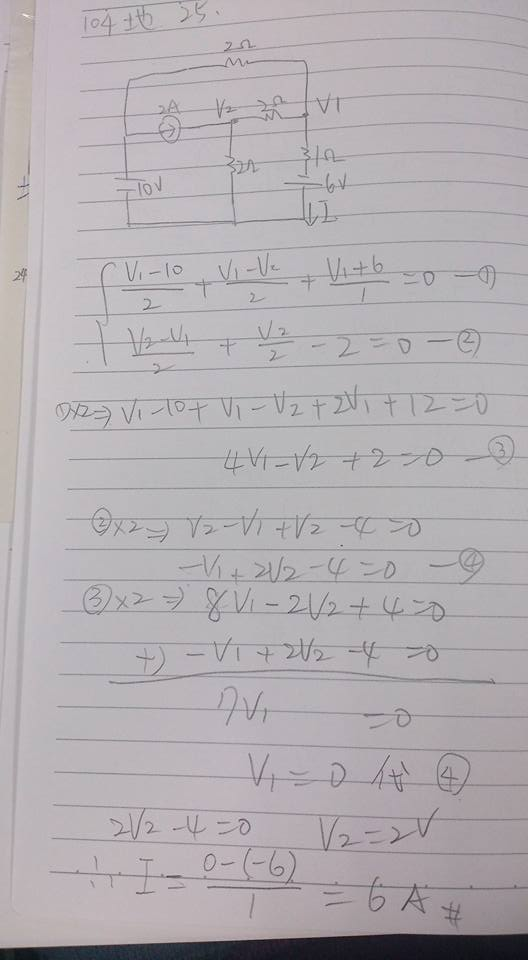 104 地 25.
2Ω
2A V2 2Ω V1
2Ω 1Ω
10V 6V
↓I
24
{ (V1-10)/2 + (V1-V2)/2 + (V1+6)/1 = 0 —①
(V2-V1)/2 + V2/2 - 2 = 0 —②
①×2⇒ V1-10+V1-V2+2V1+12=0
4V1-V2+2=0 —③
②×2⇒ V2-V1+V2-4=0
-V1+2V2-4=0 —④
③×2⇒ 8V1-2V2+4=0
+) -V1+2V2-4=0
7V1 =0
V1=0 代 ④
2V2-4=0 V2=2V
∴ I = (0-(-6))/1 = 6A #